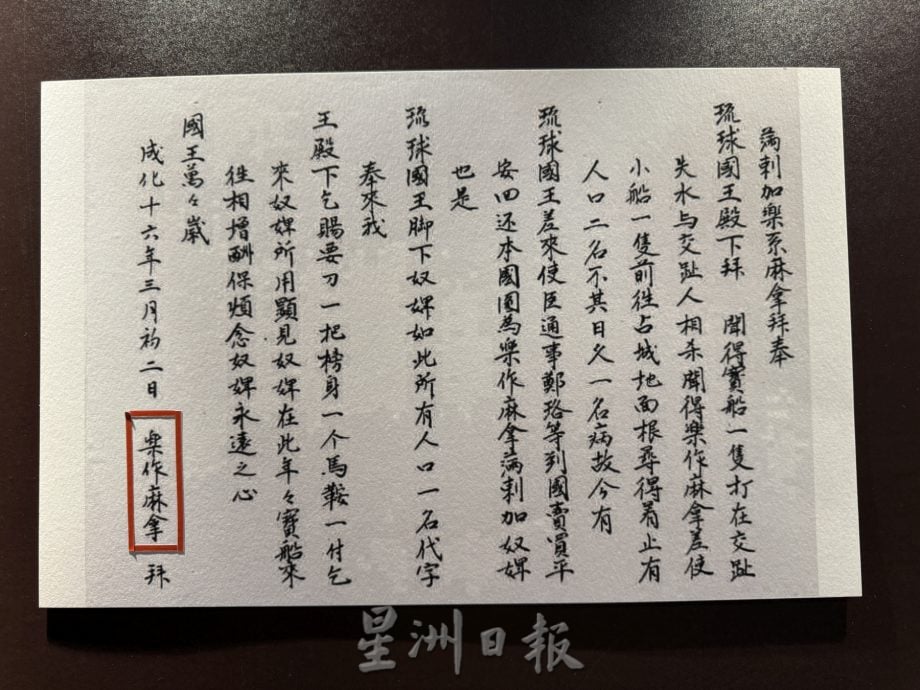 滿剌加樂系麻拿拜奉
琉球國王殿下拜　聞得寳船一隻打在交趾
失水与交趾人相杀聞得樂作麻拿差使
小船一隻前徃占城地面根尋得着止有
人口二名不其日久一名病故今有
琉球國王差來使臣通事鄭珞等到國賣買平
安囬还本國因為樂作麻拿滿剌加奴婢
也是
琉球國王脚下奴婢如此所有人口一名代字
奉來我
王殿下乞賜要刀一把榜身一个馬鞍一付乞
來奴婢所用顯見奴婢在此年々寳船來
徃相增酬保煩念奴婢永遠之心
國王萬々歲
成化十六年三月初二日 樂作麻拿 拜
星洲日報